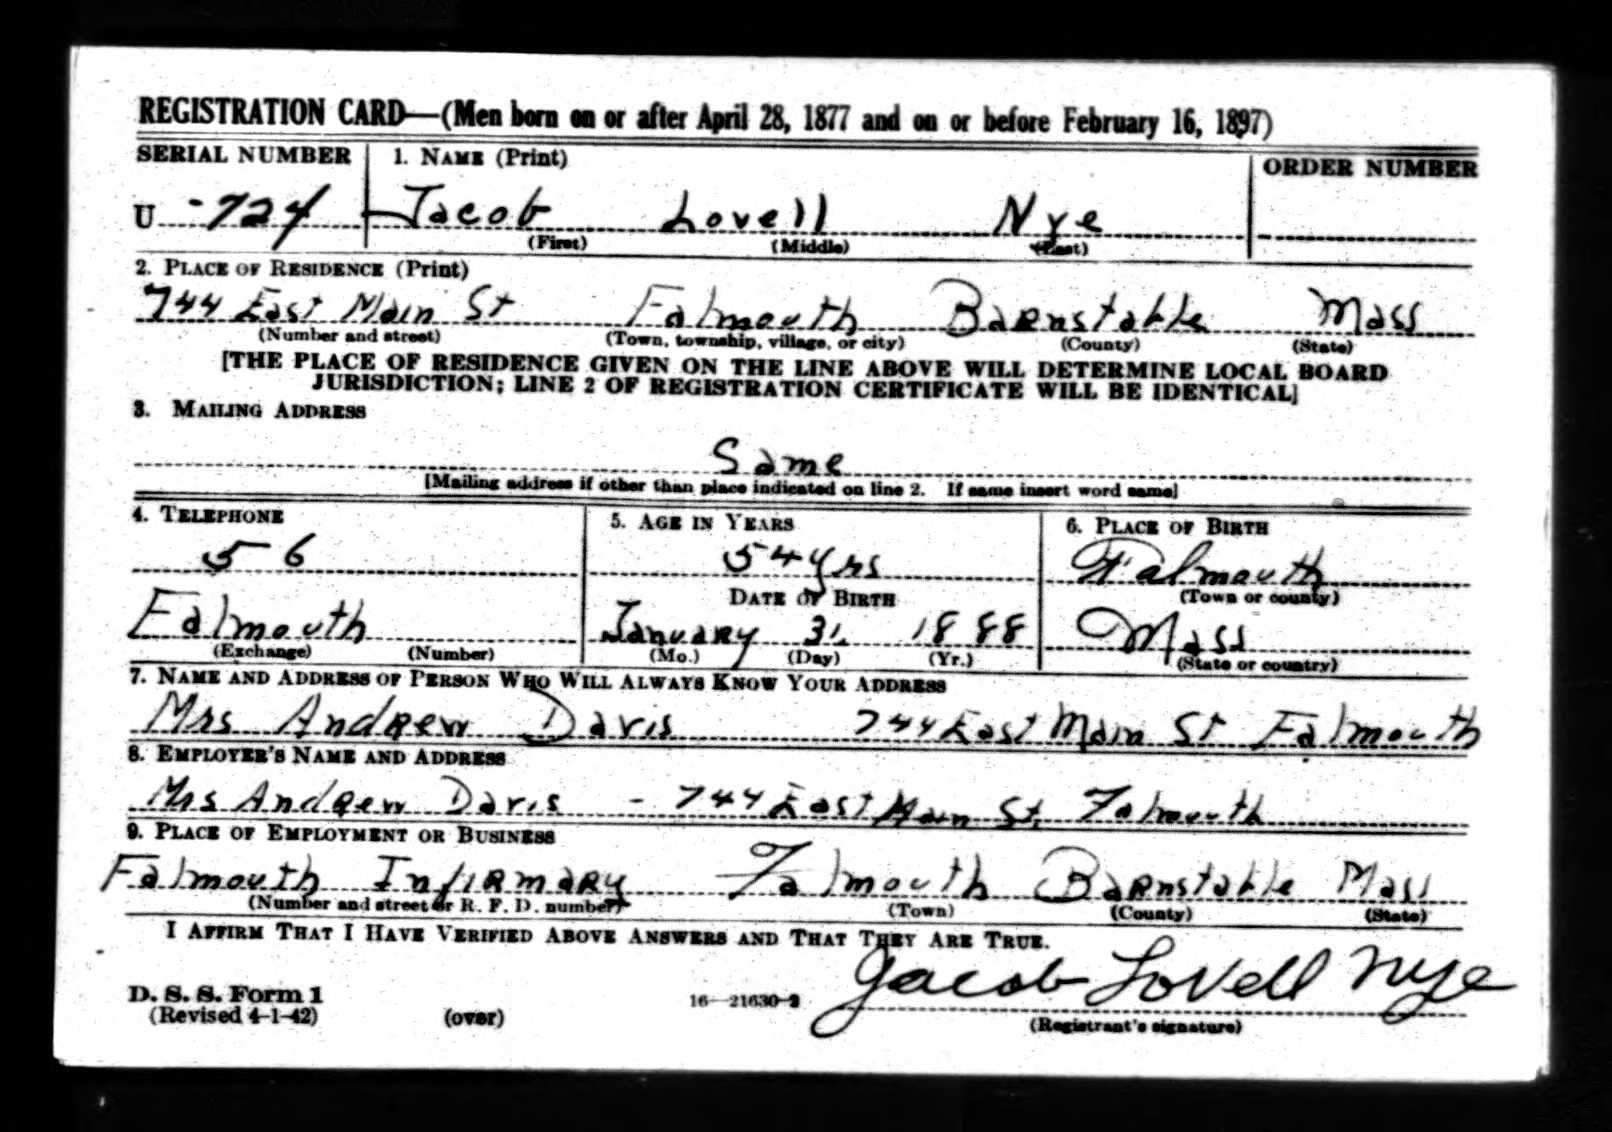 REGISTRATION CARD—(Men born on or after April 28, 1877 and on or before February 16, 1897)
SERIAL NUMBER 1. NAME (Print) ORDER NUMBER
U -724 Jacob Lovell Nye
(First) (Middle) (Last)
2. PLACE OF RESIDENCE (Print)
744 East Main St Falmouth Barnstable Mass
(Number and street) (Town, township, village, or city) (County) (State)
[THE PLACE OF RESIDENCE GIVEN ON THE LINE ABOVE WILL DETERMINE LOCAL BOARD
JURISDICTION; LINE 2 OF REGISTRATION CERTIFICATE WILL BE IDENTICAL]
3. MAILING ADDRESS
Same
[Mailing address if other than place indicated on line 2. If same insert word same]
4. TELEPHONE 5. AGE IN YEARS 6. PLACE OF BIRTH
56 54 yrs Falmouth
DATE OF BIRTH (Town or county)
Falmouth January 31. 1888 Mass
(Exchange) (Number) (Mo.) (Day) (Yr.) (State or country)
7. NAME AND ADDRESS OF PERSON WHO WILL ALWAYS KNOW YOUR ADDRESS
Mrs Andrew Davis 744 East Main St Falmouth
8. EMPLOYER'S NAME AND ADDRESS
Mrs Andrew Davis - 744 East Main St. Falmouth
9. PLACE OF EMPLOYMENT OR BUSINESS
Falmouth Infirmary Falmouth Barnstable Mass
(Number and street or R. F. D. number) (Town) (County) (State)
I AFFIRM THAT I HAVE VERIFIED ABOVE ANSWERS AND THAT THEY ARE TRUE.
Jacob Lovell Nye
D. S. S. Form 1 16—21630-2
(Revised 4-1-42) (over) (Registrant's signature)